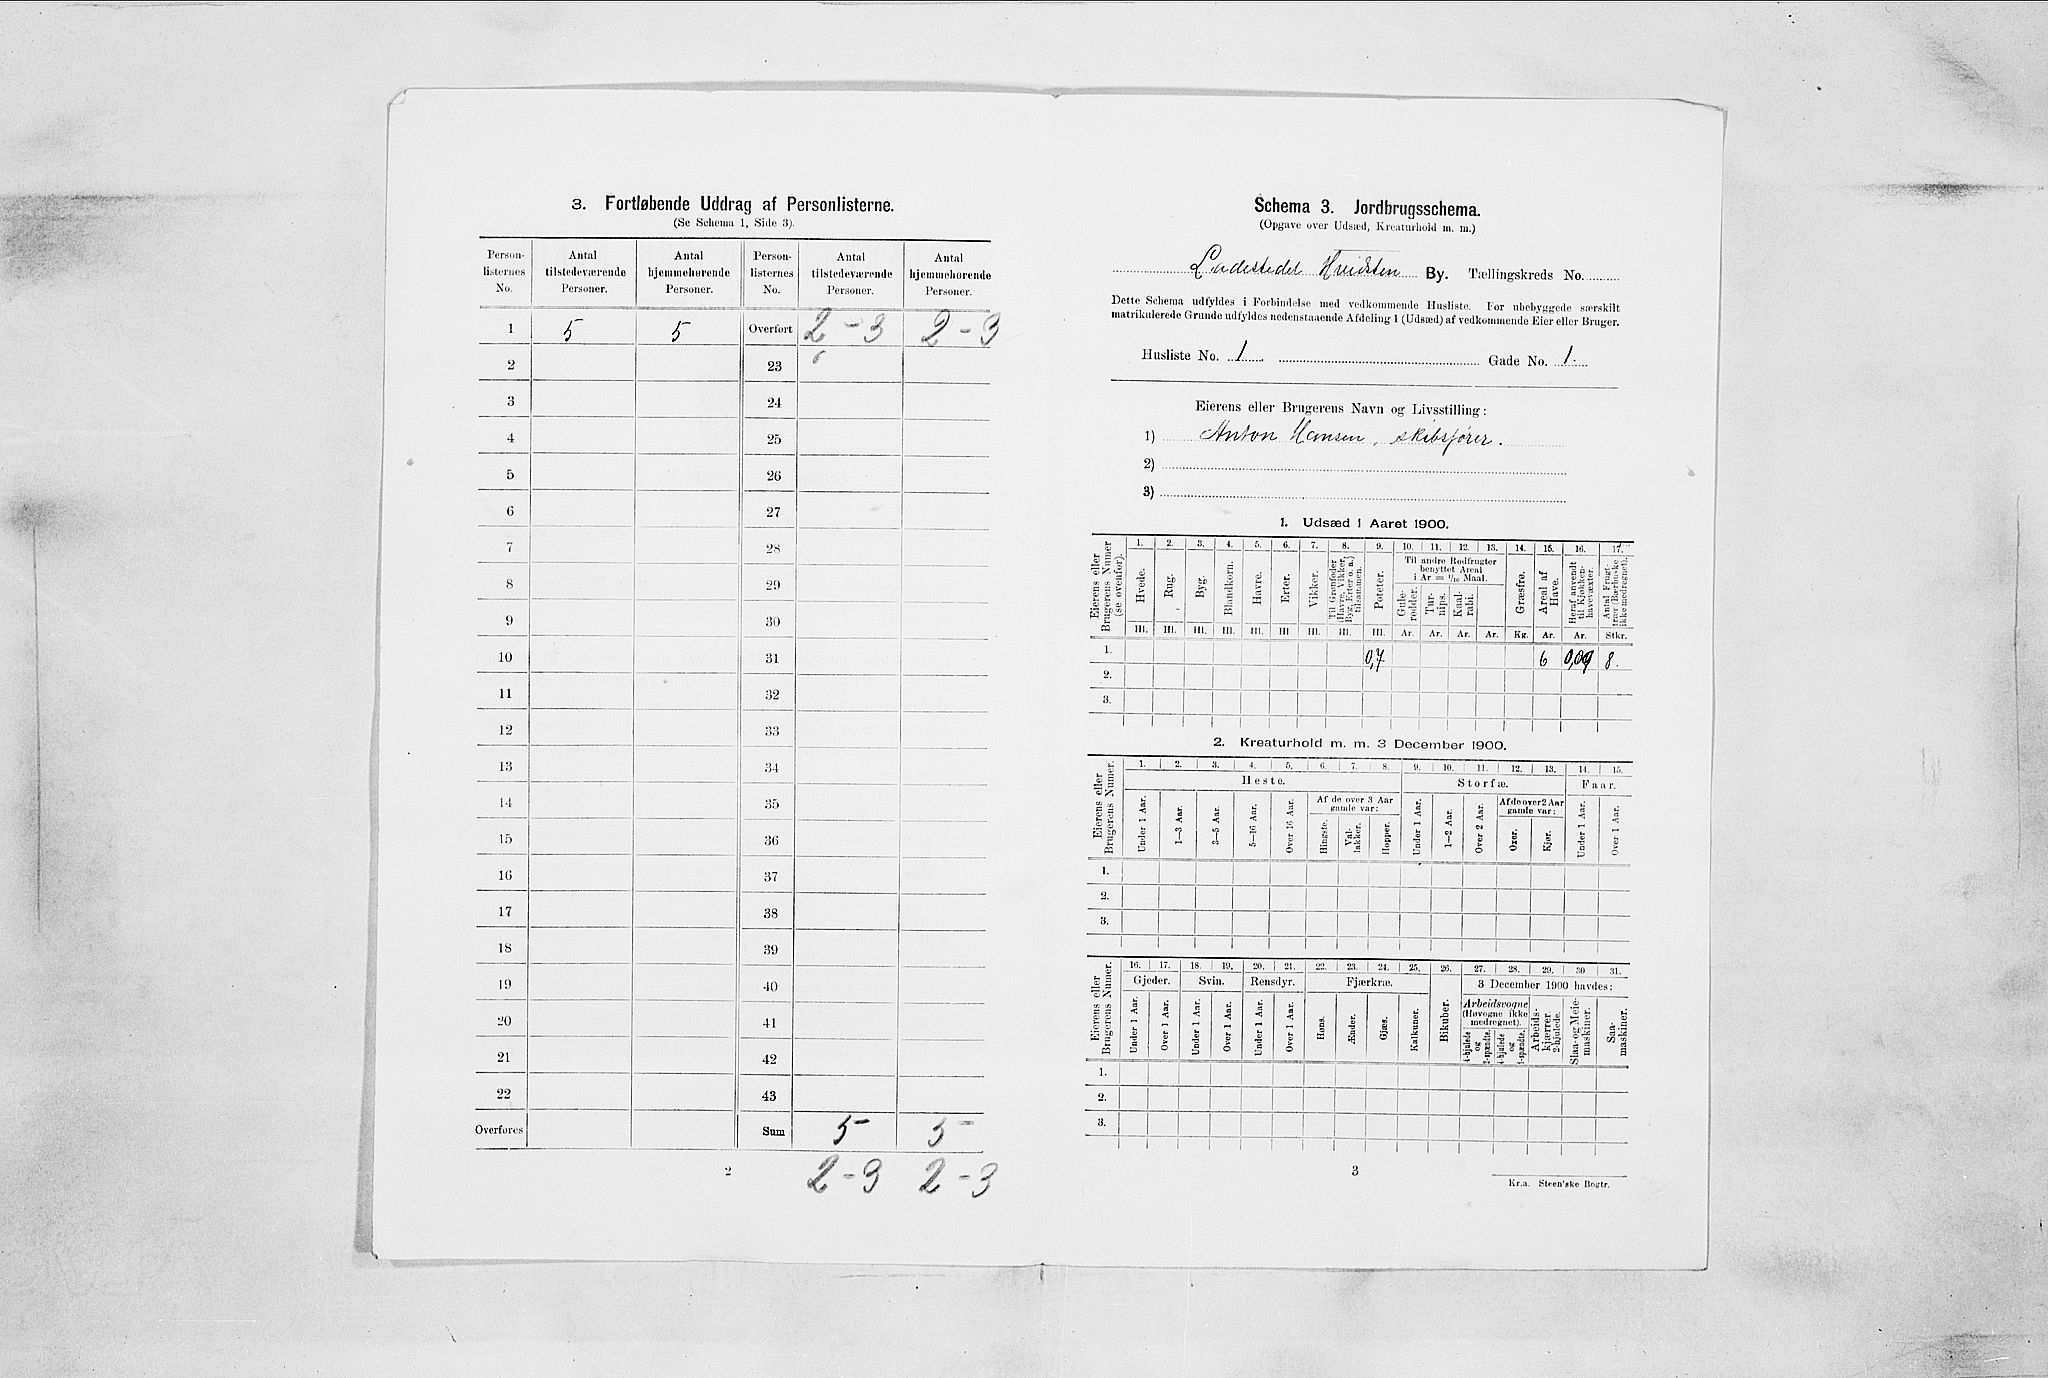 3. Fortløbende Uddrag af Personlisterne.
(Se Schema 1, Side 3).
Person-listernes No. Antal tilstedeværende Personer. Antal hjemmehørende Personer. Person-listernes No. Antal tilstedeværende Personer. Antal hjemmehørende Personer.
1 5 5 Overført 2-3 2-3
2 23
3 24
4 25
5 26
6 27
7 28
8 29
9 30
10 31
11 32
12 33
13 34
14 35
15 36
16 37
17 38
18 39
19 40
20 41
21 42
22 43
Overføres Sum 5 5
2-3 2-3
2
Schema 3. Jordbrugsschema.
(Opgave over Udsæd, Kreaturhold m. m.)
Ladestedet Hvidsten By. Tællingskreds No.
Dette Schema udfyldes i Forbindelse med vedkommende Husliste. For ubebyggede særskilt
matrikulerede Grunde udfyldes nedenstaaende Afdeling 1 (Udsæd) af vedkommende Eier eller Bruger.
Husliste No. 1 Gade No. 1.
Eierens eller Brugerens Navn og Livsstilling:
1) Anton Hansen, skibsfører.
2)
3)
1. Udsæd i Aaret 1900.
Eierens eller Brugerens Numer (se ovenfor).
1. 2. 3. 4. 5. 6. 7. 8. 9. 10. 11. 12. 13. 14. 15. 16. 17.
Hvede. Rug. Byg. Blandkorn. Havre. Erter. Vikker. Til Grønfoder (Havre, Vikker, Byg, Erter o. a.) tilsammen. Poteter. Til andre Rodfrugter benyttet Areal i Ar = 1/10 Maal. Gulerødder. Turnips. Kaalrabi. Græsfrø. Areal af Have. Heraf anvendt til Kjøkkenhavevæxter. Antal Frugttrær (Bærbuske ikke medregnet).
Hl. Hl. Hl. Hl. Hl. Hl Hl. Hl. Hl. Ar. Ar. Ar. Ar. Kg. Ar. Ar. Stkr.
1. 0,7 6 8.
2.
3.
2. Kreaturhold m. m. 3 December 1900.
Eierens eller Brugerens Numer.
1. 2. 3. 4. 5. 6. 7. 8. 9. 10. 11. 12. 13. 14. 15.
Heste. Storfæ. Faar.
Under 1 Aar. 1—3 Aar. 3—5 Aar. 5—16 Aar. Over 16 Aar. Af de over 3 Aar gamle var: Hingste. Vallakker. Hopper. Under 1 Aar. 1—2 Aar. Over 2 Aar. Af de over 2 Aar gamle var: Oxer. Kjør. Under 1 Aar. Over 1 Aar.
1.
2.
3.
Eierens eller Brugerens Numer.
16. 17. 18. 19. 20. 21. 22. 23. 24. 25. 26. 27. 28. 29. 30 31.
Gjeder. Svin. Rensdyr. Fjærkræ. Bikuber. 3 December 1900 havdes:
Under 1 Aar. Over 1 Aar. Under 1 Aar. Over 1 Aar. Under 1 Aar. Over 1 Aar. Høns. Ænder. Gjæs. Kalkuner. Arbeidsvogne (Høvogne ikke medregnet). 4-hjulede og 2-spændte. 4-hjulede og 1-spændte. Arbeids-kjærrer, 2-hjulede. Slaa- og Meie-maskiner. Saa-maskiner.
1.
2.
3.
3
Kr.a. Steen'ske Bogtr.